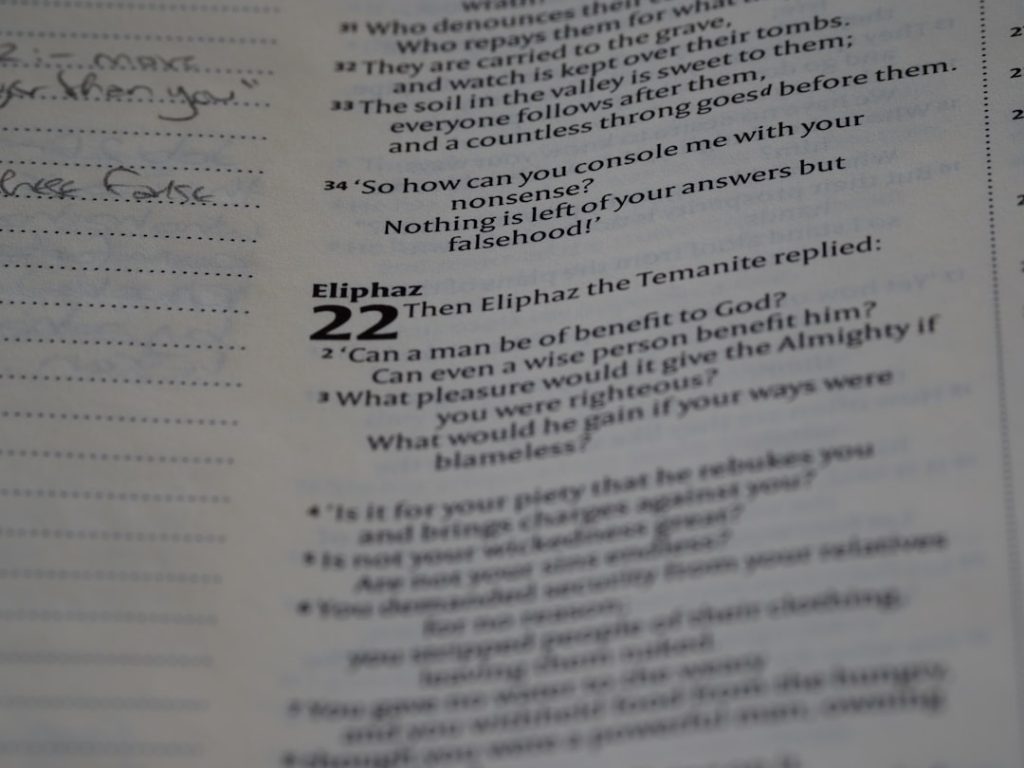 more
than you"
False
wrath.
31 Who denounces their
Who repays them for what
32 They are carried to the grave,
and watch is kept over their tombs.
33 The soil in the valley is sweet to them;
everyone follows after them,
and a countless throng goesd before them.
34 ‘So how can you console me with your
nonsense?
Nothing is left of your answers but
falsehood!’
Eliphaz
22 Then Eliphaz the Temanite replied:
2 ‘Can a man be of benefit to God?
Can even a wise person benefit him?
3 What pleasure would it give the Almighty if
you were righteous?
What would he gain if your ways were
blameless?
4 ‘Is it for your piety that he rebukes you
and brings charges against you?
5 Is not your wickedness great?
Are not your sins endless?
6 You demanded security from your relatives
for no reason;
you stripped people of their clothing,
leaving them naked.
7 You gave no water to the weary
and you withheld food from the hungry,
8 though you were a powerful man, owning